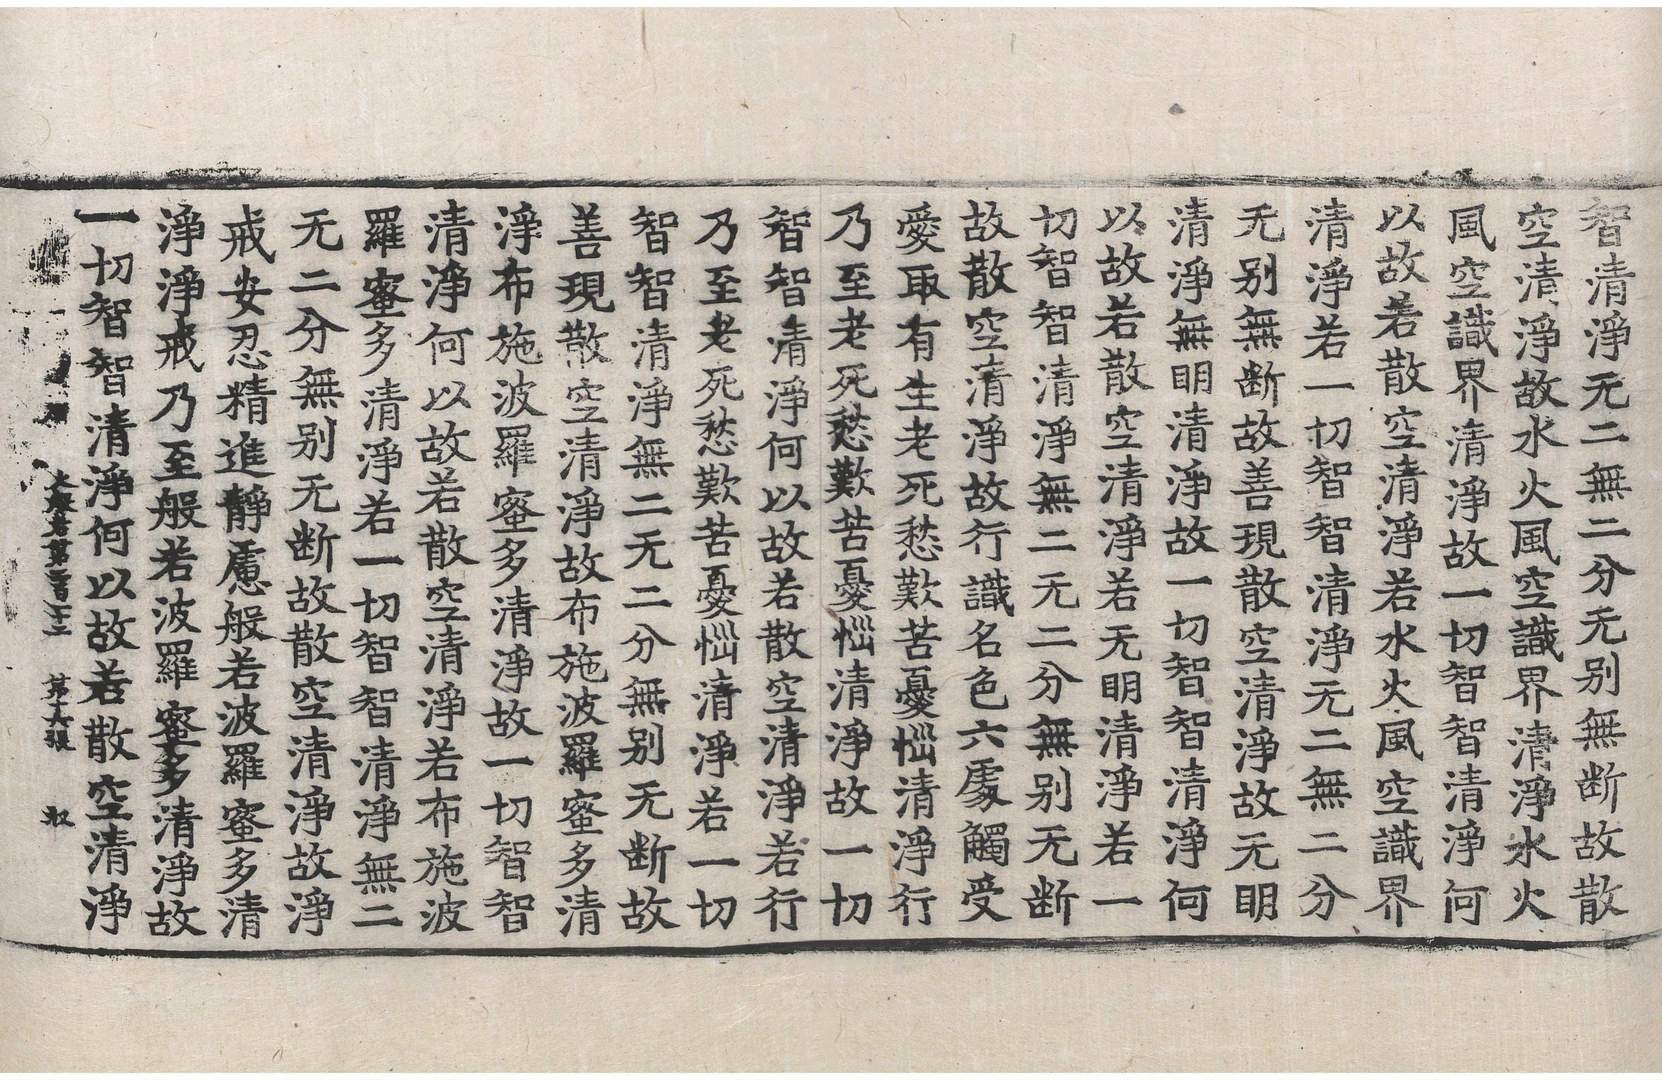 智清淨无二無二分无別無断故散
空清淨故水火風空識界清淨水火
風空識界清淨故一切智智清淨何
以故若散空清淨若水火風空識界
清淨若一切智智清淨无二無二分
无別無断故善現散空清淨故无明
清淨無明清淨故一切智智清淨何
以故若散空清淨若无明清淨若一
切智智清淨無二无二分無別无断
故散空清淨故行識名色六處觸受
愛取有生老死愁歎苦憂惱清淨行
乃至老死愁歎苦憂惱清淨故一切
智智清淨何以故若散空清淨若行
乃至老死愁歎苦憂惱清淨若一切
智智清淨無二无二分無別无断故
善現散空清淨故布施波羅蜜多清
淨布施波羅蜜多清淨故一切智智
清淨何以故若散空清淨若布施波
羅蜜多清淨若一切智智清淨無二
无二分無別无断故散空清淨故淨
戒安忍精進靜慮般若波羅蜜多清
淨淨戒乃至般若波羅蜜多清淨故
一切智智清淨何以故若散空清淨
大般若第 第十六張